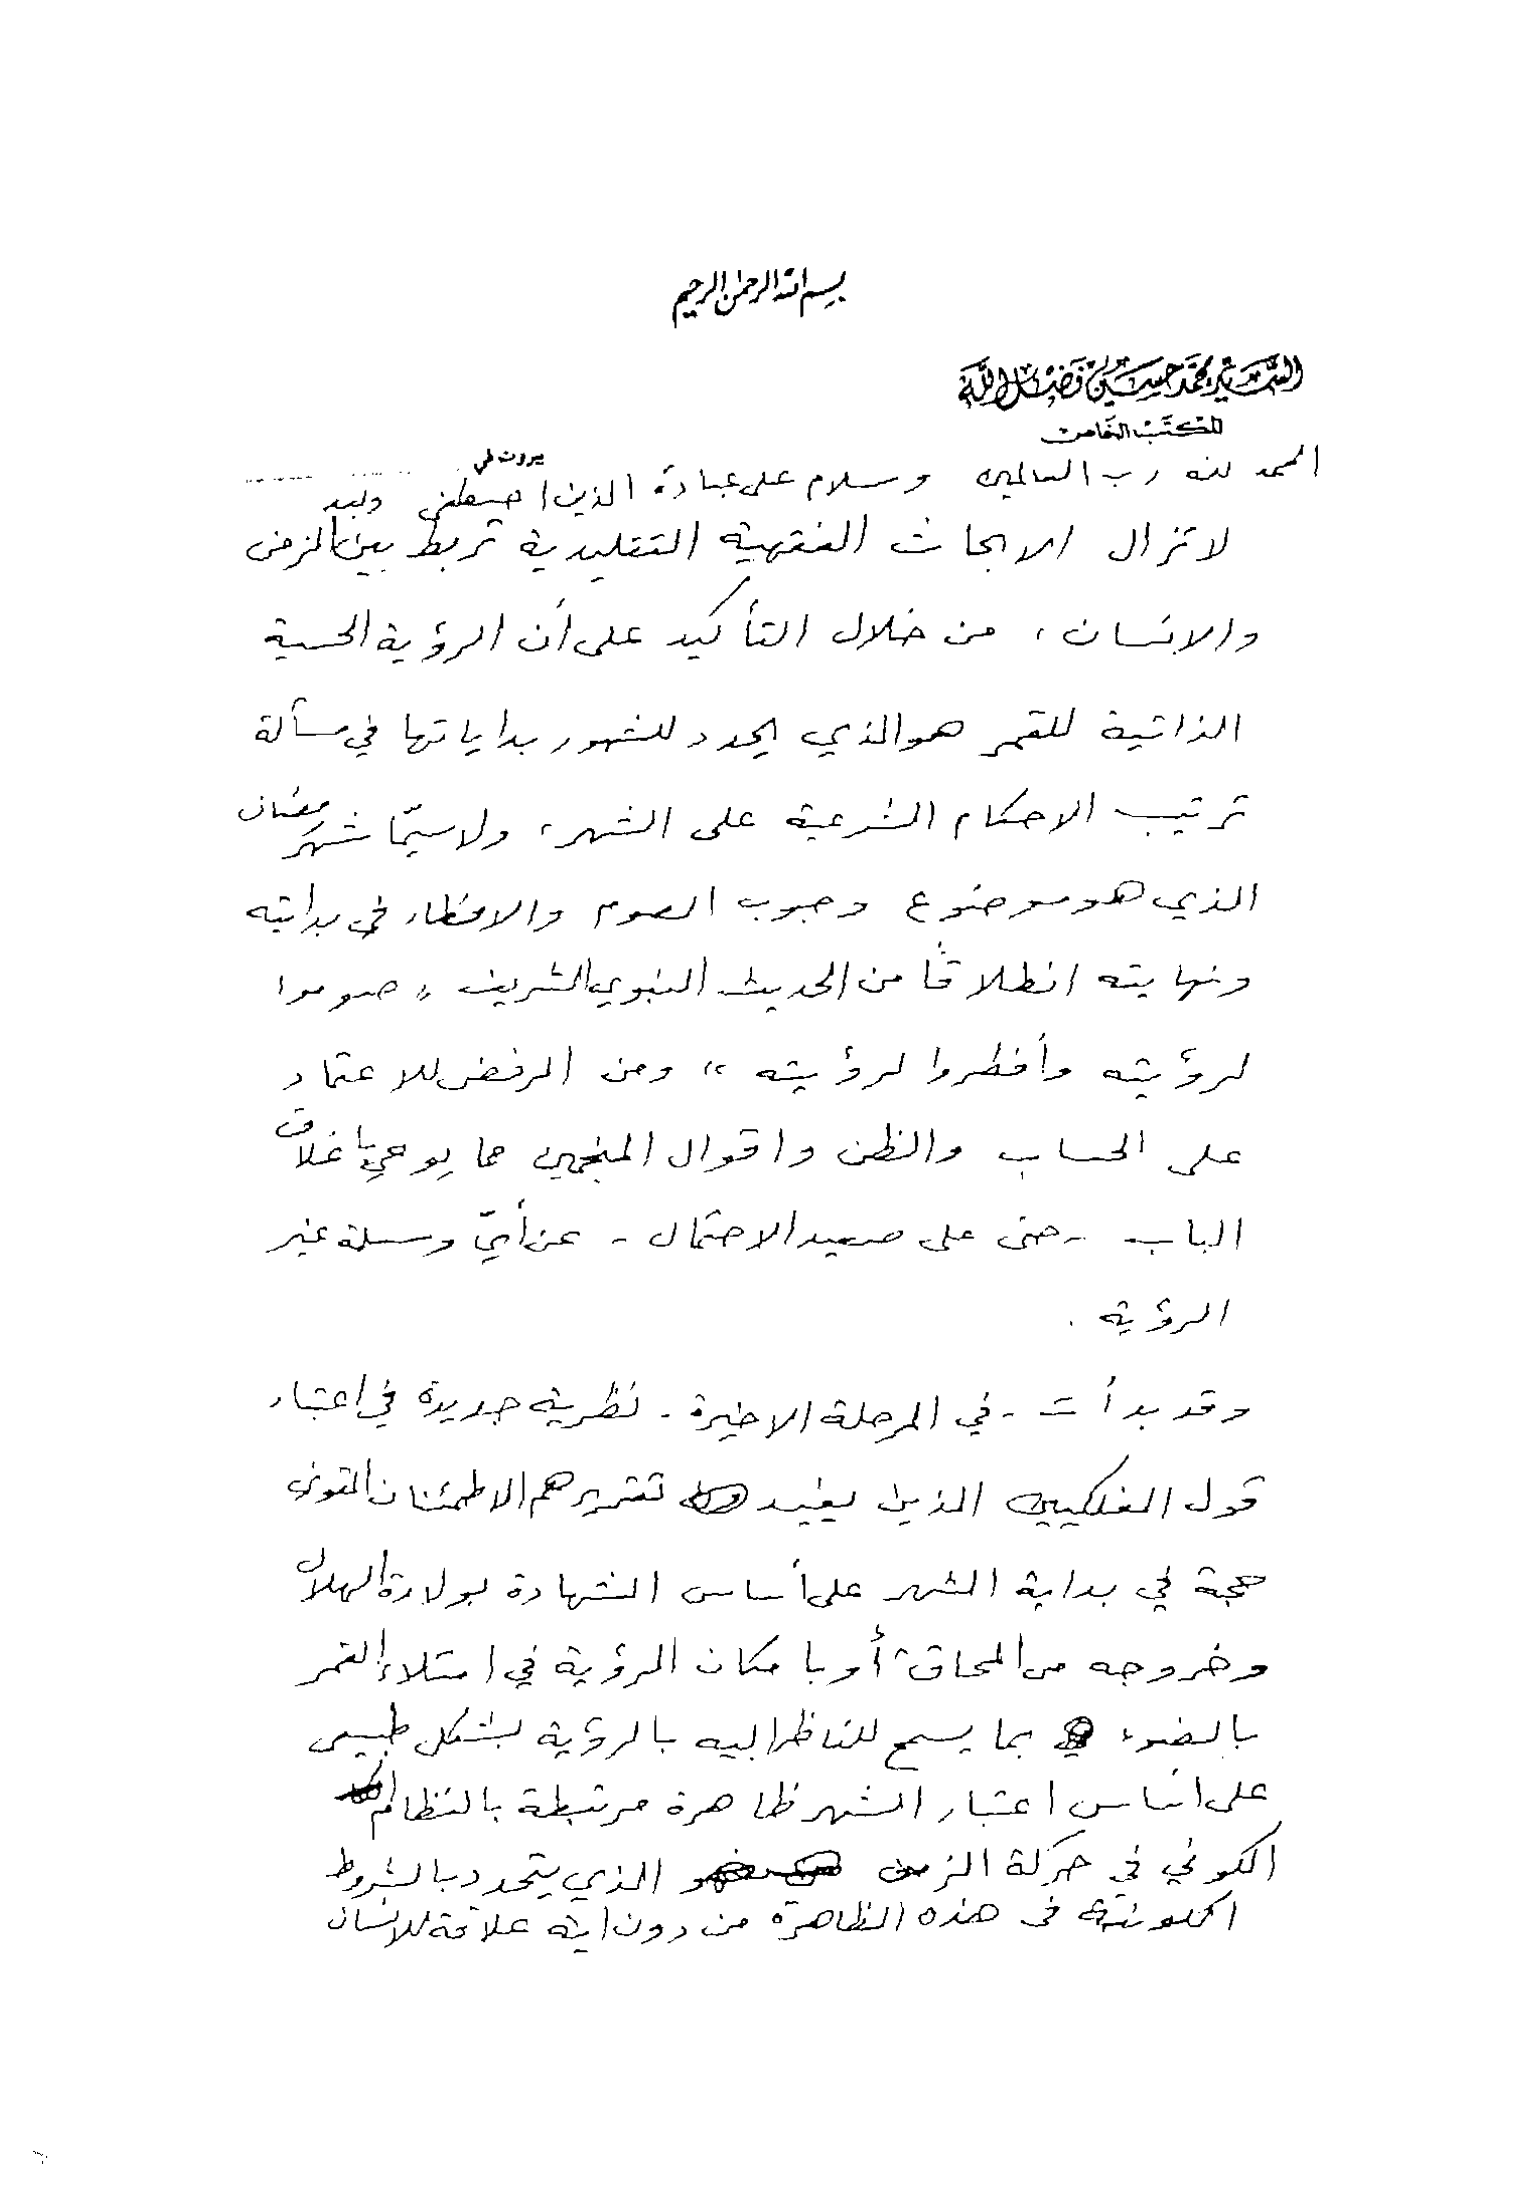 بسم الله الرحمن الرحيم
السيد محمد حسين فضل الله
المكتب الخاص
بيروت في
الحمد لله رب العالمين وسلام على عباده الذين اصطفى وبعد
لا تزال الابحاث الفقهية التقليدية تربط بين الزمن
والانسان، من خلال التأكيد على أن الرؤية الحسية
الذاتية للقمر هو الذي يحدد للشهور بداياتها في مسألة
ترتيب الاحكام الشرعية على الشهر، ولا سيّما شهر رمضان
الذي هو موضوع وجوب الصوم والافطار في بدايته
ونهايته انطلاقًا من الحديث النبوي الشريف "صوموا
لرؤيته وأفطروا لرؤيته" ومن الرفض للاعتماد
على الحساب والظن واقوال المنجمين مما يوحي باغلاق
الباب - حتى على صعيد الاحتمال - عن أيّ وسيلة غير
الرؤية .
وقد بدأت - في المرحلة الاخيرة - نظرية جديدة في اعتبار
قول الفلكيين الذين يفيد تقريرهم الاطمئنان القوي
حجة في بداية الشهر على أساس الشهادة بولادة الهلال
وخروجه من المحاق، أو بامكان الرؤية في امتلاء القمر
بالضوء بما يسمح للناظر اليه بالرؤية بشكل طبيعي
على اساس اعتبار الشهر ظاهرة مرتبطة بالنظام
الكوني في حركة الزمن الذي يتحدد بالشروط
الكونية في هذه الظاهرة من دون اية علاقة للانسان